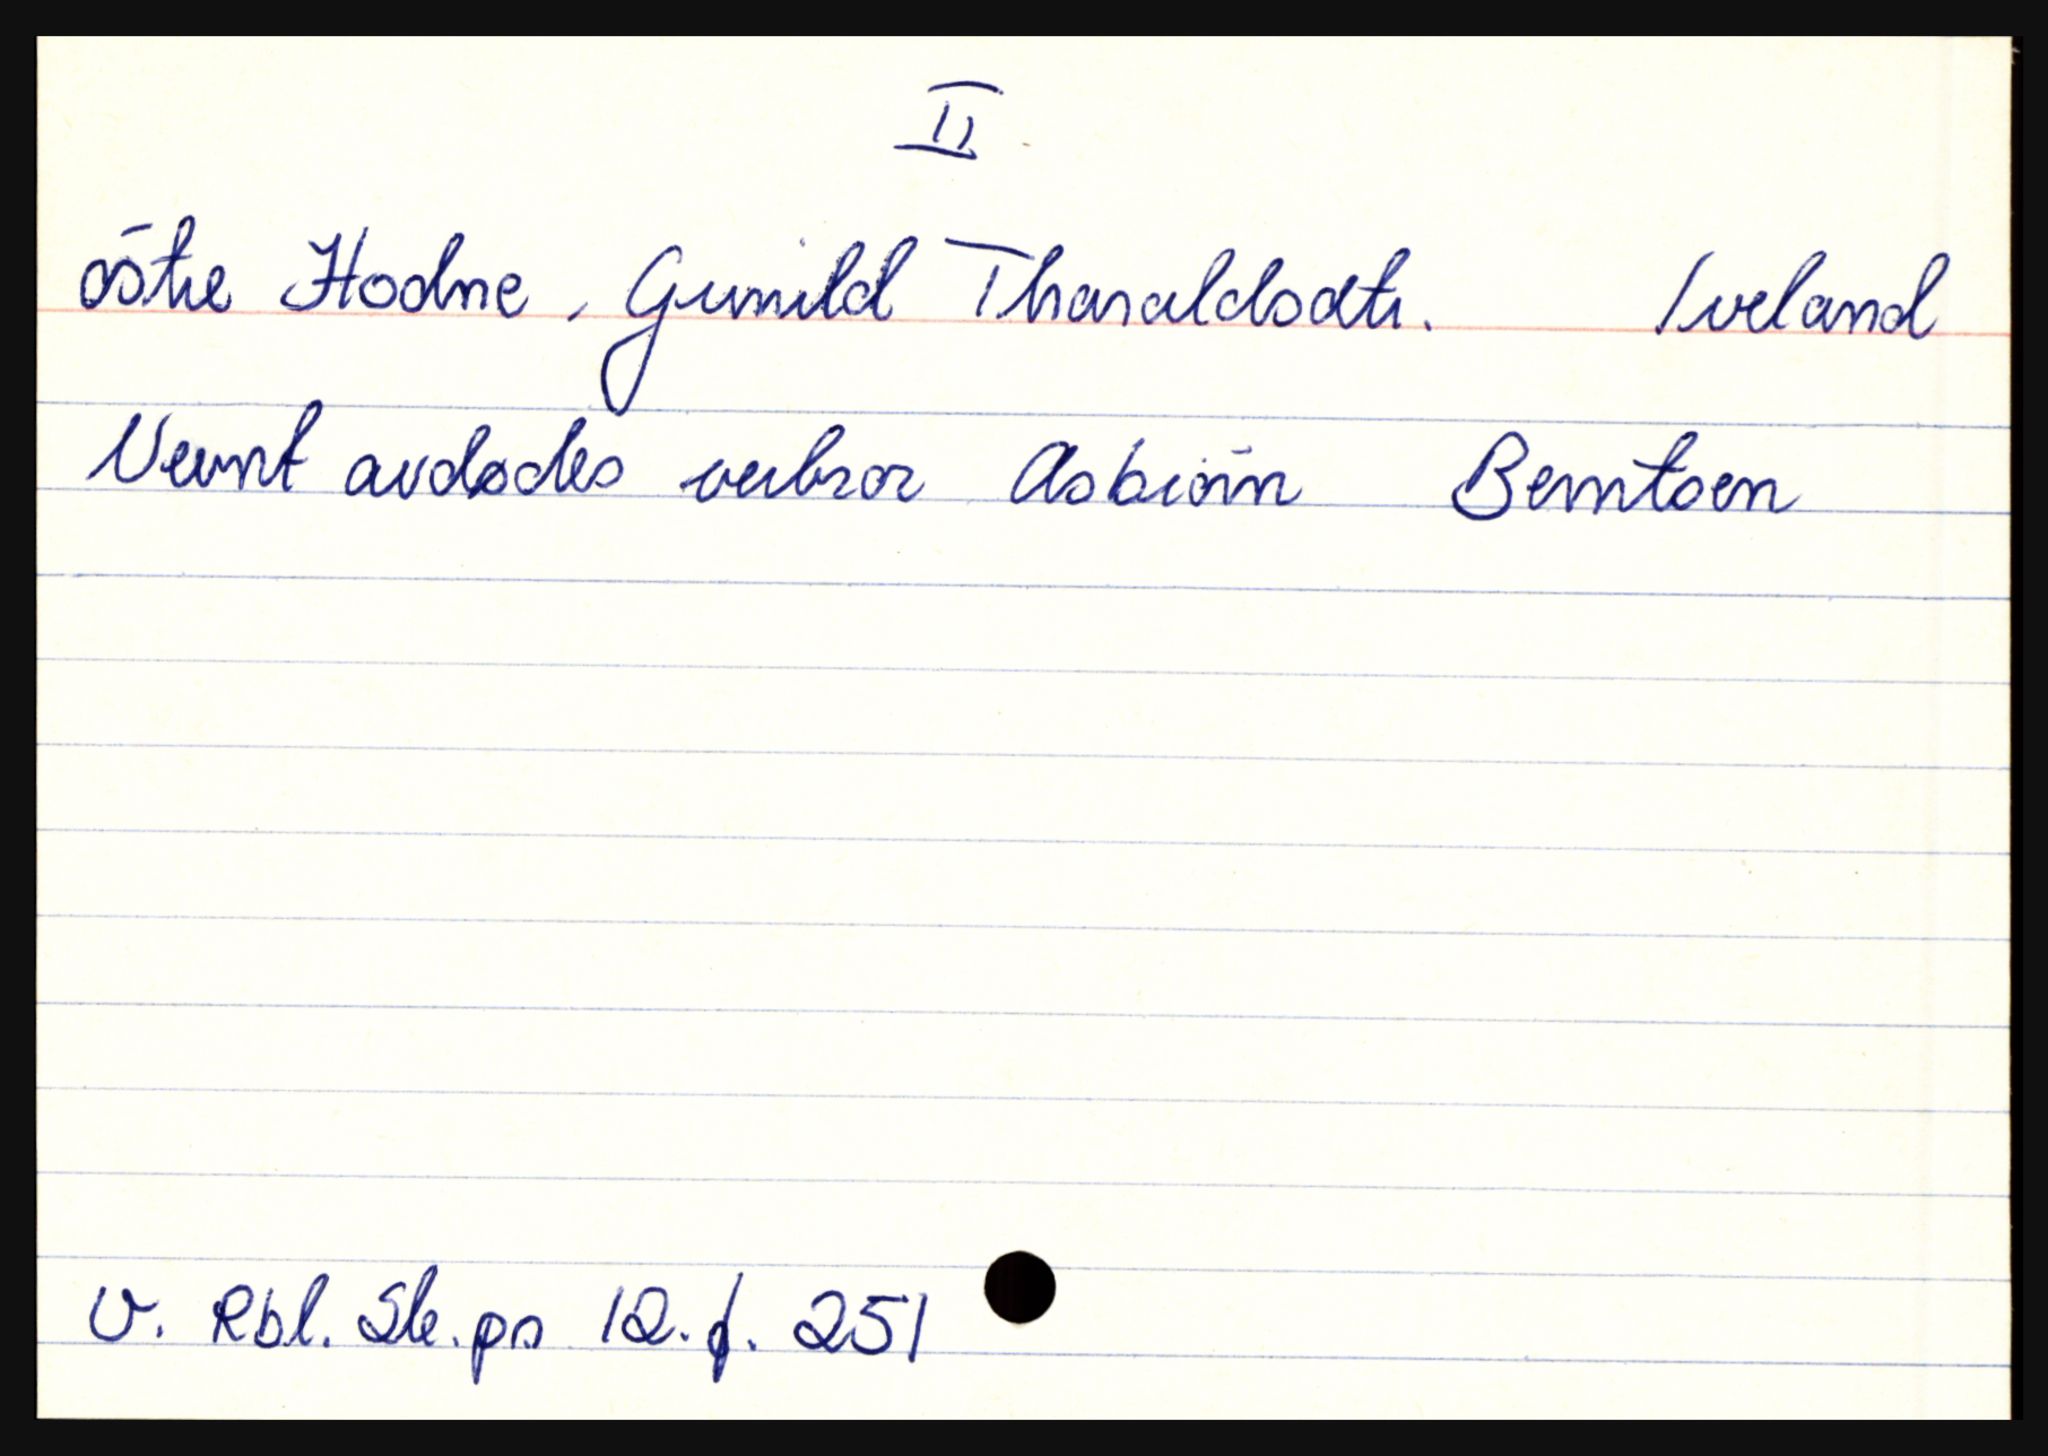 II
östre Hodne, Gunild Tharaldsdtr. Iveland
Nevnt avdødes verbror Asbiörn Berntsen
V. Rbl. Sk.ps 12. f. 251